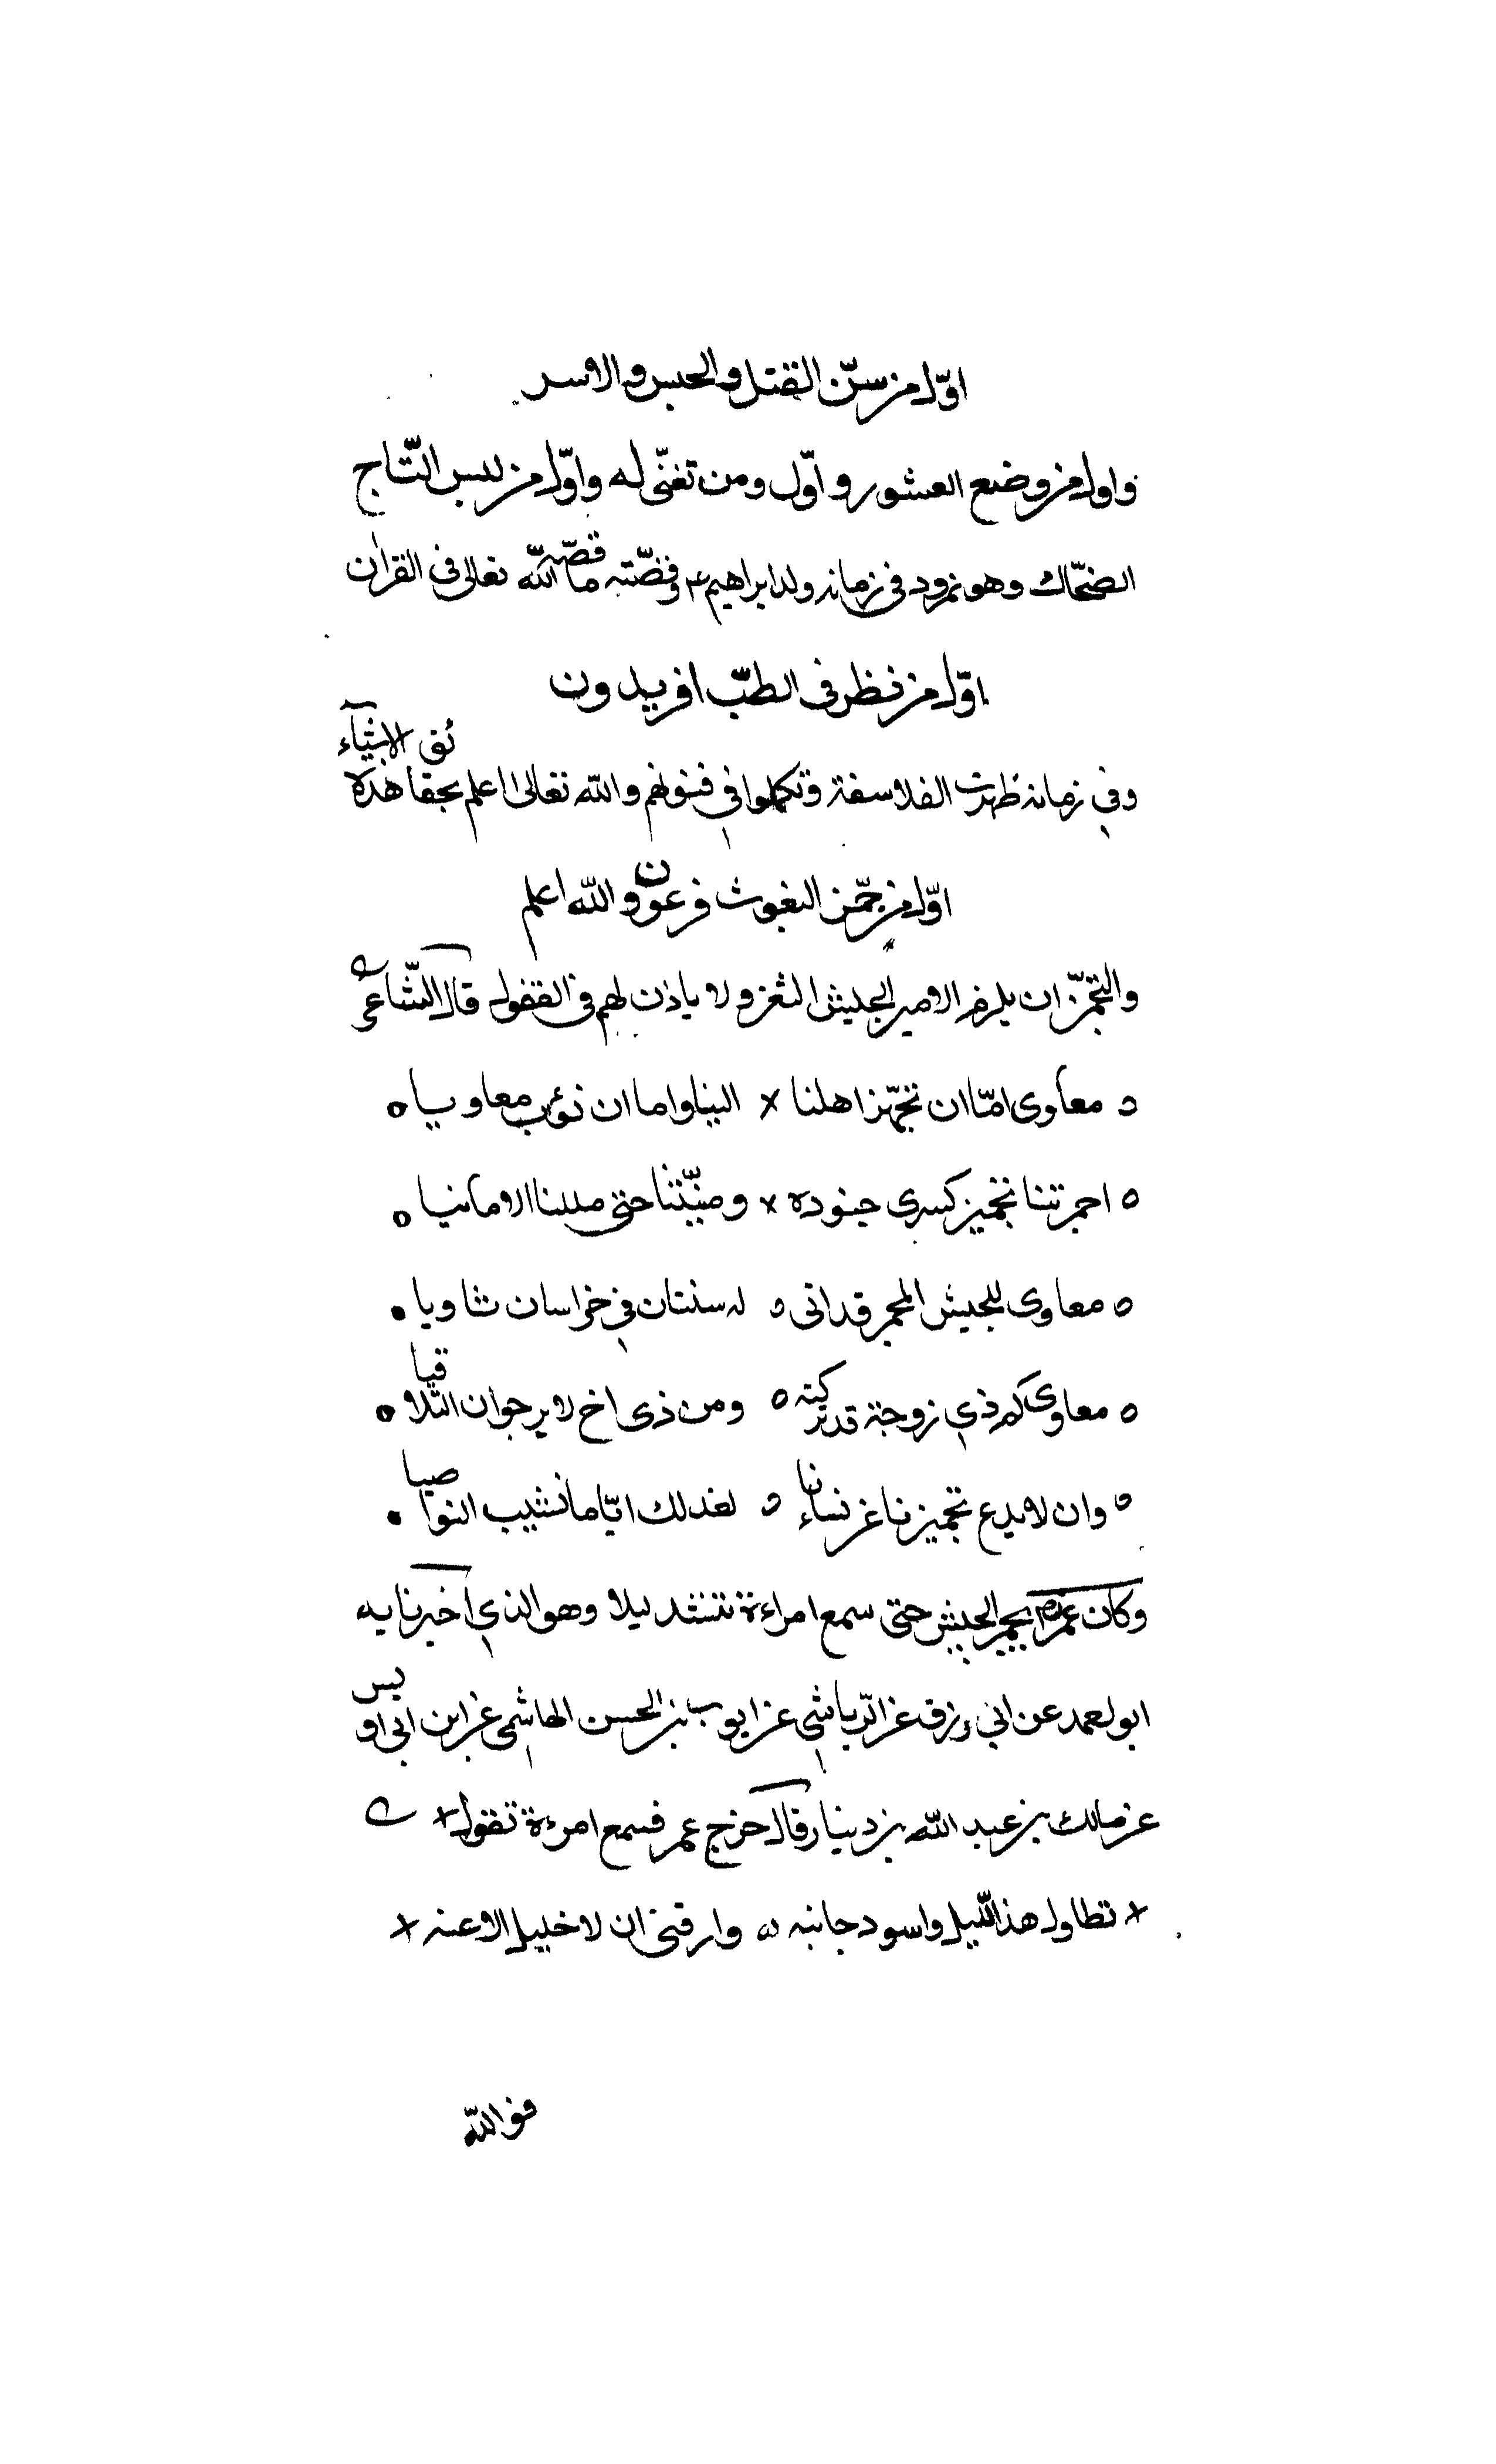 اوّل من سنّ القتل والحبس والاسر
واول من وضع العشور و اوّل ومن تغنّى له واوّل من لبس التّاج
الضحّاك وهو نمرود فى زمانه ولد ابراهيم ع م وقصّته ما قصّه اللّه تعالى فى القرآن
اوّل من نظر فى الطبّ افريدون
وفي زمانه ظهرت الفلاسفة وتكلموا في فنونهم واللّه تعالى اعلم بحقائق الاشيآء هذه
اوّل من جمّر البغوث فرعون واللّه اعلم
والتجمّر ان يلزم الامير الجيش الثغر ولا ياذن لهم فى القفول قال الشّاعر
معاوى امّا ان تجهّز اهلنا × الينا واما ان نؤب معاويا
اجمرتنا تجمير كسرى جنوده × ومنّيتنا حتى مللنا الامانيا
معاوى للجيش المجمر قد اتى له سنتان في خراسان ثاويا
معاوى كم ذي زوجة قد تركته ومن ذى اخ لا يرجوان التلاقيا
وان لا تدع تجميرنا عن نسائنا لغد لك ايّاما تشيب النواصيا
وكان عمر يجمر الجيش حتى سمع امراءة تنشد ليلا وهو الذي اخبرنا به
ابو لعمد عن ابي رزق عن الرّياشي عن ايوب بن الحسن الهاشمى عن ابن ابى اويس
عن مالك بن عبد اللّه بن دينار قال خرج عمر فسمع امرءة تقول ×
× تطاول هذا اللّيل واسود جانبه وارقنى ان لا خليل الاعبه ×
فو اللّه